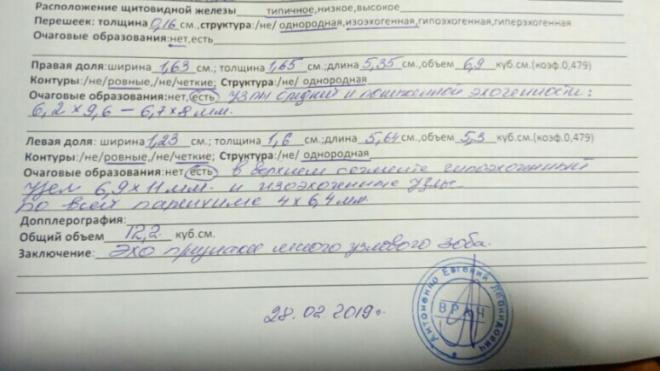 Расположение щитовидной железы типичное,низкое,высокое
Перешеек: толщина 0,16 см.,структура:/не/ однородная,изоэхогенная,гипоэхогенная,гиперэхогенная
Очаговые образования:нет,есть
Правая доля:ширина 1,63 см.; толщина 1,65 см.;длина 5,35 см.,объем 6,9 куб.см.(коэф.0,479)
Контуры:/не/ровные,/не/четкие; Структура:/не/ однородная
Очаговые образования:нет,есть узлы средней и пониженной эхогенности:
6,2 х 9,6 – 6,7 х 8 мм.
Левая доля: ширина 1,23 см.; толщина 1,6 см.;длина 5,64 см.,объем 5,3 куб.см.(коэф.0,479)
Контуры:/не/ровные,/не/четкие; Структура:/не/ однородная
Очаговые образования:нет,есть в верхнем сегменте гипоэхогенный
узел 6,9 х 11 мм. и изоэхогенные узлы.
по всей паренхиме 4 х 6,4 мм.
Допплерография:
Общий объем 12,2 куб.см.
Заключение: Эхо признаки много узлового зоба.
28.02.2019г.
Антоненко Евгений Леонидович
ВРАЧ